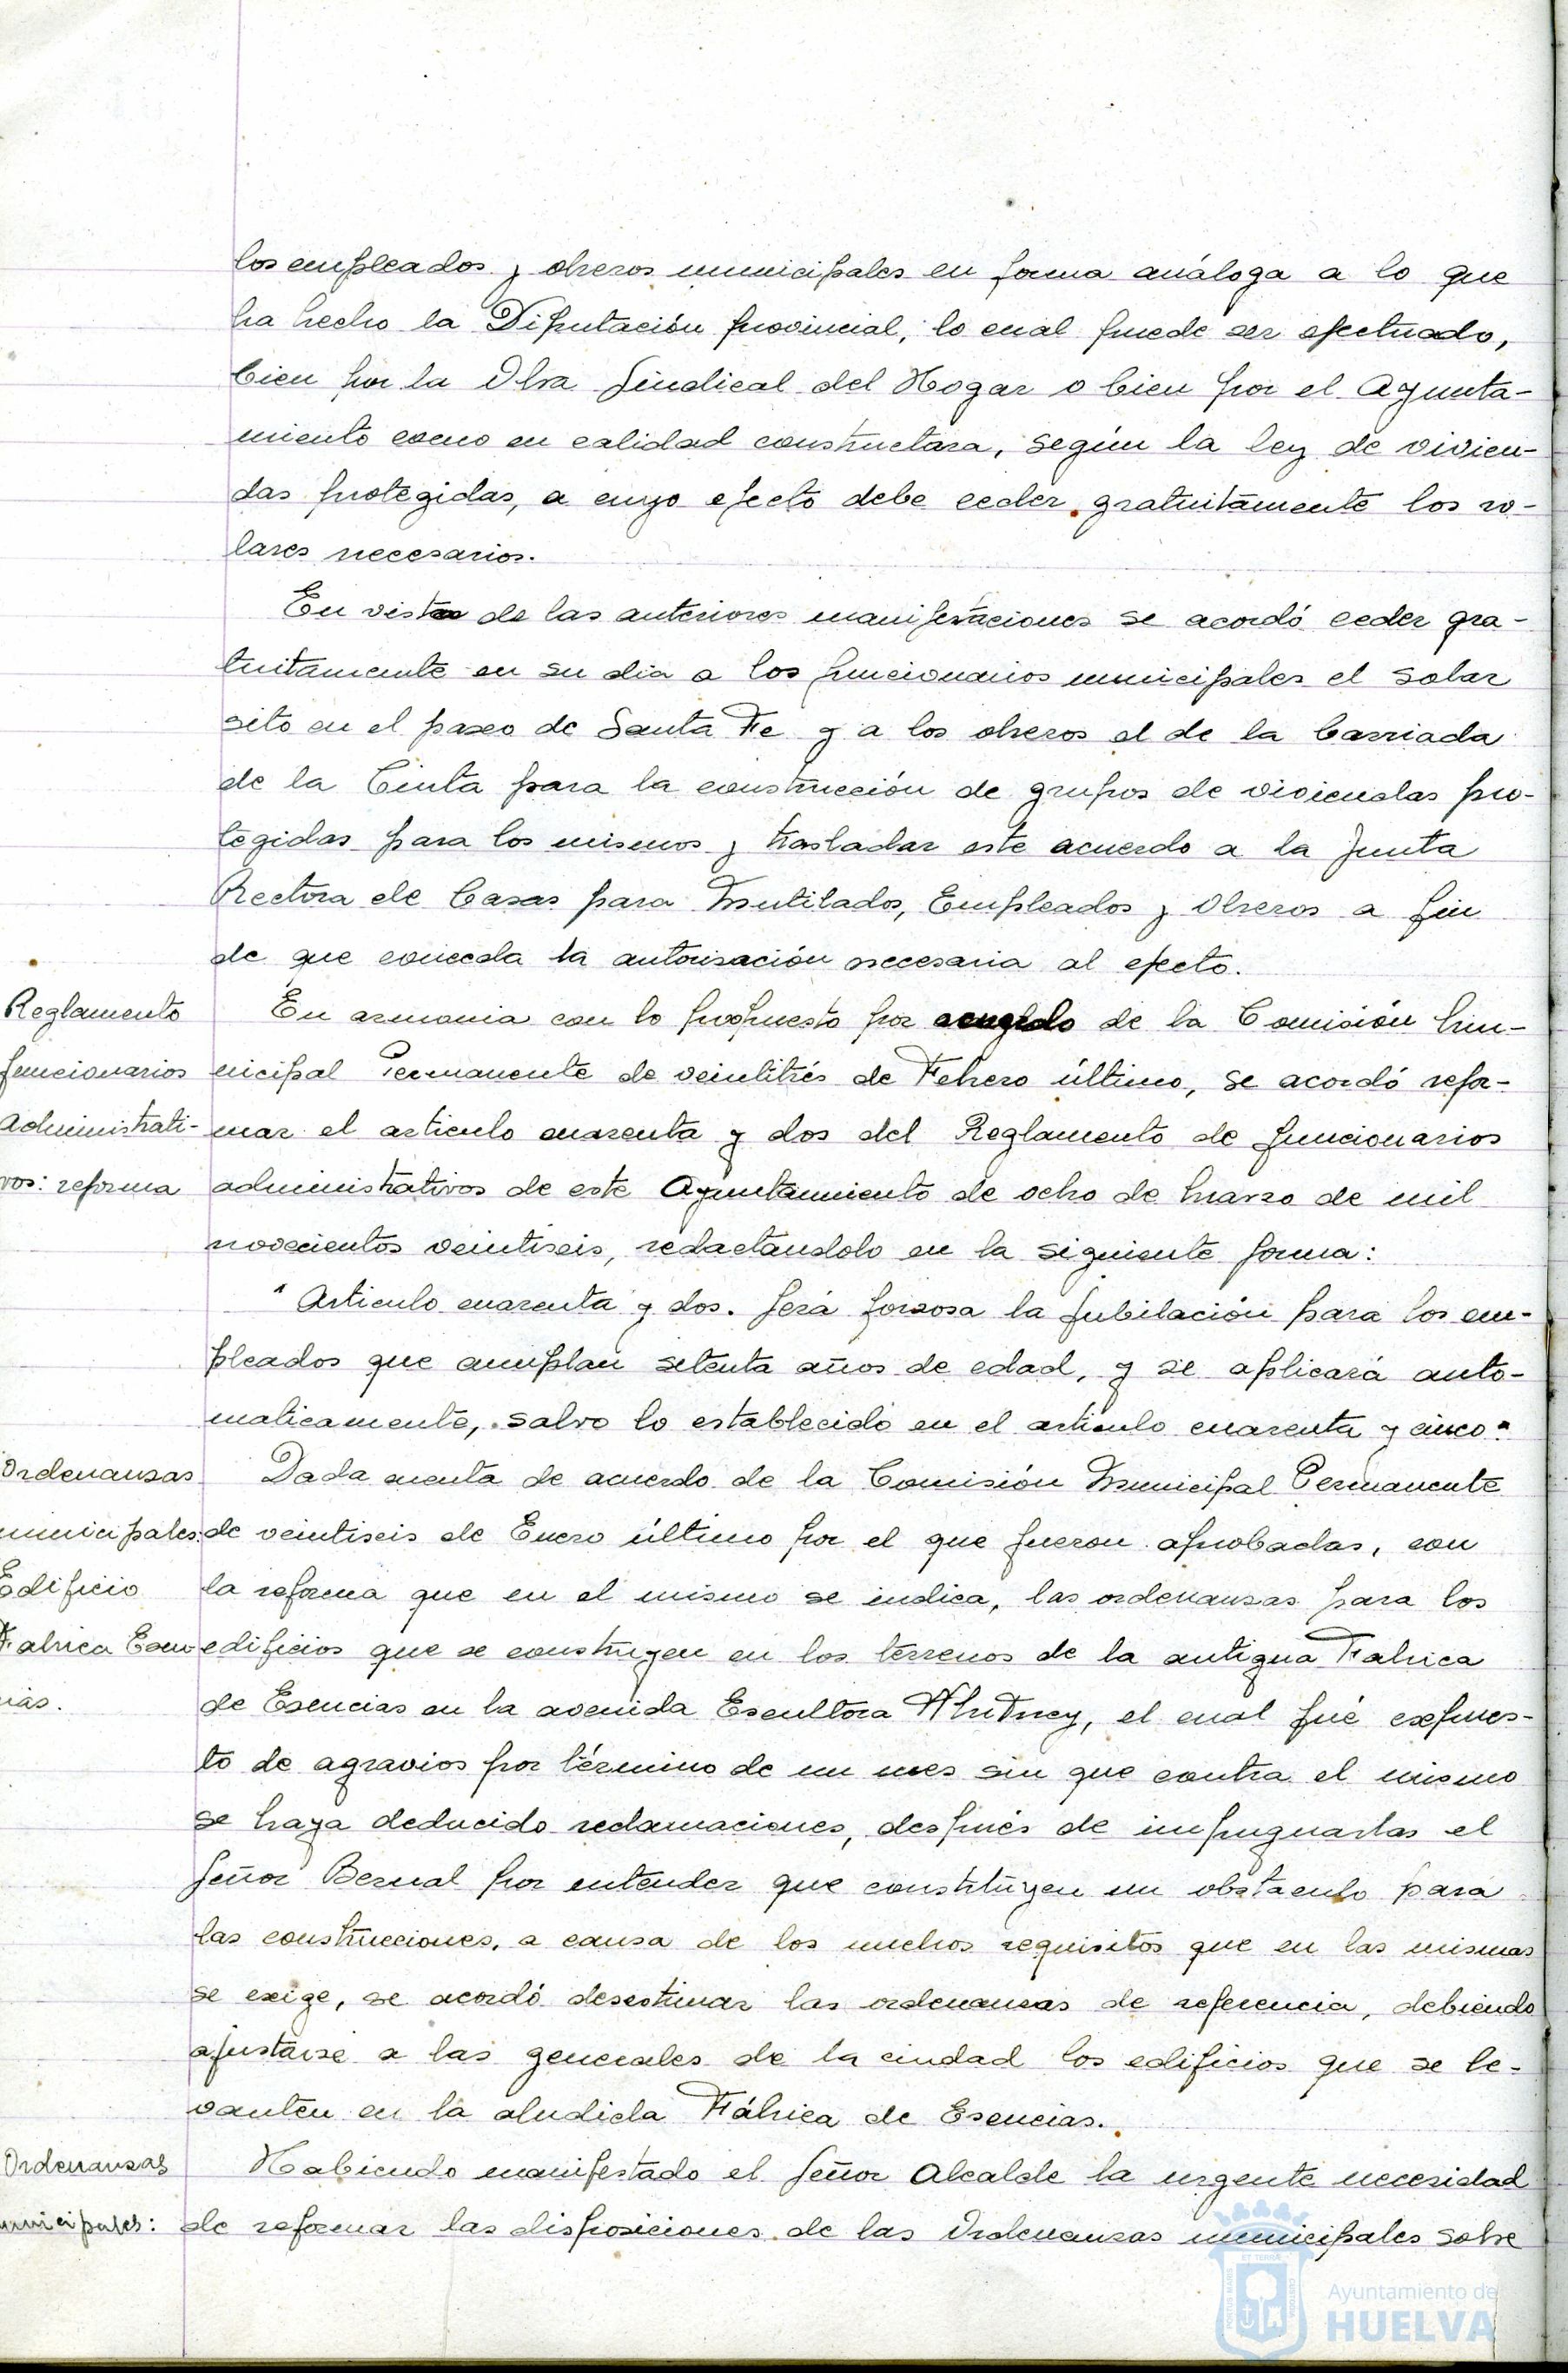 los empleados y obreros municipales en forma análoga a lo que
ha hecho la Diputación provincial, lo cual puede ser efectuado,
bien por la Obra Sindical del Hogar o bien por el Ayunta-
miento como en calidad constructora, según la ley de vivien-
das protegidas, a cuyo efecto debe ceder gratuitamente los so-
lares necesarios.
En vista de las anteriores manifestaciones se acordó ceder gra-
tuitamente en su dia a los funcionarios municipales el solar
sito en el paseo de Santa Fe y a los obreros el de la barriada
de la Cinta para la construcción de grupos de viviendas pro-
tegidas para los mismos y trasladar este acuerdo a la Junta
Rectora de Casas para Mutilados, Empleados y Obreros a fin
de que conceda la autorisación necesaria al efecto.
Reglamento
funcionarios
administrati-
vos: reforma
En armonia con lo propuesto por acuerdo de la Comisión Mu-
nicipal Permanente de veintitrés de Febrero último, se acordó refor-
mar el articulo cuarenta y dos del Reglamento de funcionarios
administrativos de este Ayuntamiento de ocho de Marzo de mil
novecientos veintiseis, redactandolo en la siguiente forma:
"Articulo cuarenta y dos. Será forzosa la jubilación para los em-
pleados que cumplan setenta años de edad, y se aplicará auto-
maticamente, salvo lo establecido en el articulo cuarenta y cinco."
Ordenansas
municipales.
Edificio
Fabrica Esen
cias.
Dada cuenta de acuerdo de la Comisión Municipal Permanente
de veintiseis de Enero último por el que fueron aprobadas, con
la reforma que en el mismo se indica, las ordenanzas para los
edificios que se construyen en los terrenos de la antigua Fabrica
de Esencias en la avenida Escultora Whitney, el cual fué expues-
to de agravios por término de un mes sin que contra el mismo
se haya deducido reclamaciones, después de impugnarlas el
Señor Bernal por entender que constituyen un obstaculo para
las construcciones, a causa de los muchos requisitos que en las mismas
se exige, se acordó desestimar las ordenansas de referencia, debiendo
ajustarse a las generales de la ciudad los edificios que se le-
vanten en la aludida Fábrica de Esencias.
Ordenansas
municipales:
Habiendo manifestado el Señor Alcalde la urgente necesidad
de reformar las disposiciones de las Ordenansas municipales sobre
Ayuntamiento de
HUELVA